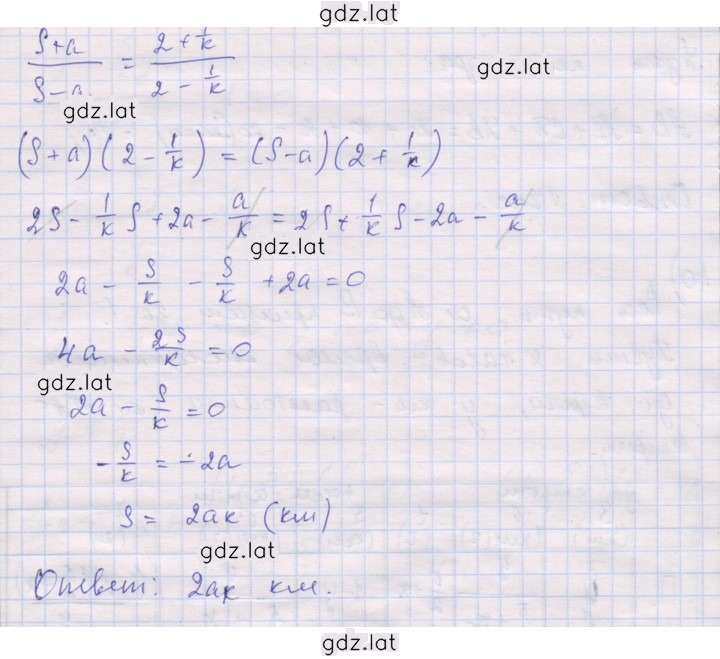 gdz.lat
(S+a)/(S-a) = (2+1/к)/(2-1/к)
gdz.lat
gdz.lat
(S+a)(2-1/к) = (S-a)(2+1/к)
2S - 1/к S + 2a - a/к = 2S + 1/к S - 2a - a/к
gdz.lat
2a - S/к - S/к + 2a = 0
4a - 2S/к = 0
gdz.lat
2a - S/к = 0
- S/к = -2a
S = 2aк (км)
gdz.lat
Ответ: 2aк км.
gdz.lat